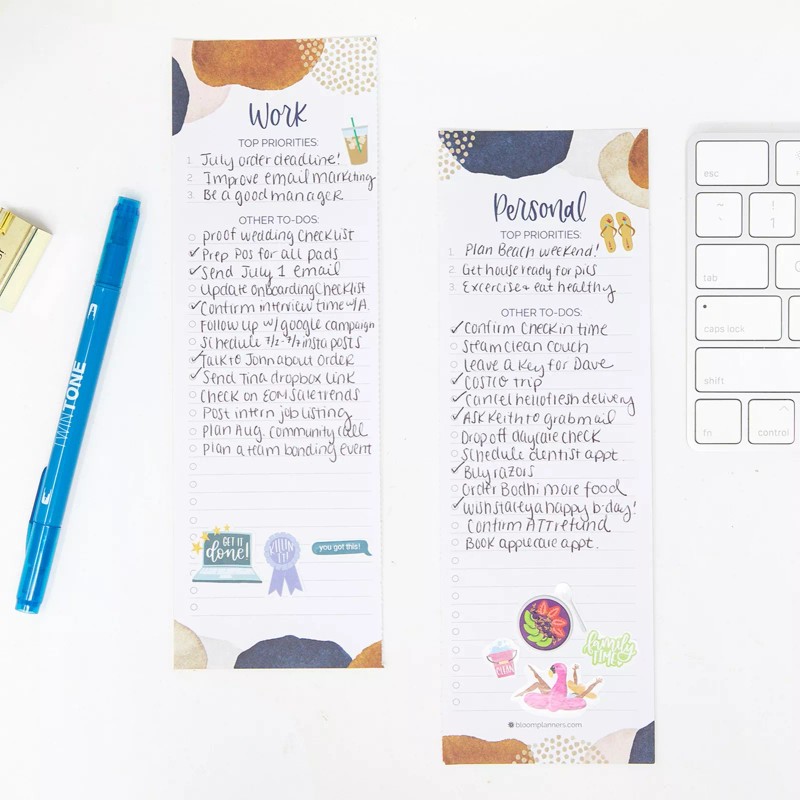 Work
TOP PRIORITIES:
1. July order deadline!
2. Improve email marketing
3. Be a good manager
OTHER TO-DOS:
proof wedding checklist
Prep POs for all pads
Send July 1 email
Update onboarding checklist
Confirm interview time w/A.
Follow up w/ google campaign
Schedule 7/2-7/7 insta posts
Talk to John about order
Send Tina dropbox link
Check on EOM sale trends
Post intern job listing
Plan Aug. community call
Plan a team bonding event
GET IT
done!
KILLIN'
IT!
you got this!
Personal
TOP PRIORITIES:
1. Plan Beach weekend!
2. Get house ready for pics
3. Excercise + eat healthy
OTHER TO-DOS:
Confirm check in time
Steam clean couch
Leave a key for Dave
COSTCO trip
Cancel hellofresh delivery
Ask Keith to grab mail
Drop off daycare check
Schedule dentist appt.
Buy razors
Order Bodhi more food
Wish staley a happy b-day!
Confirm ATT refund
Book applecare appt.
CLEAN
family
TIME
bloomplanners.com
TWINTONE
esc
~
`
!
1
tab
caps lock
shift
fn
control